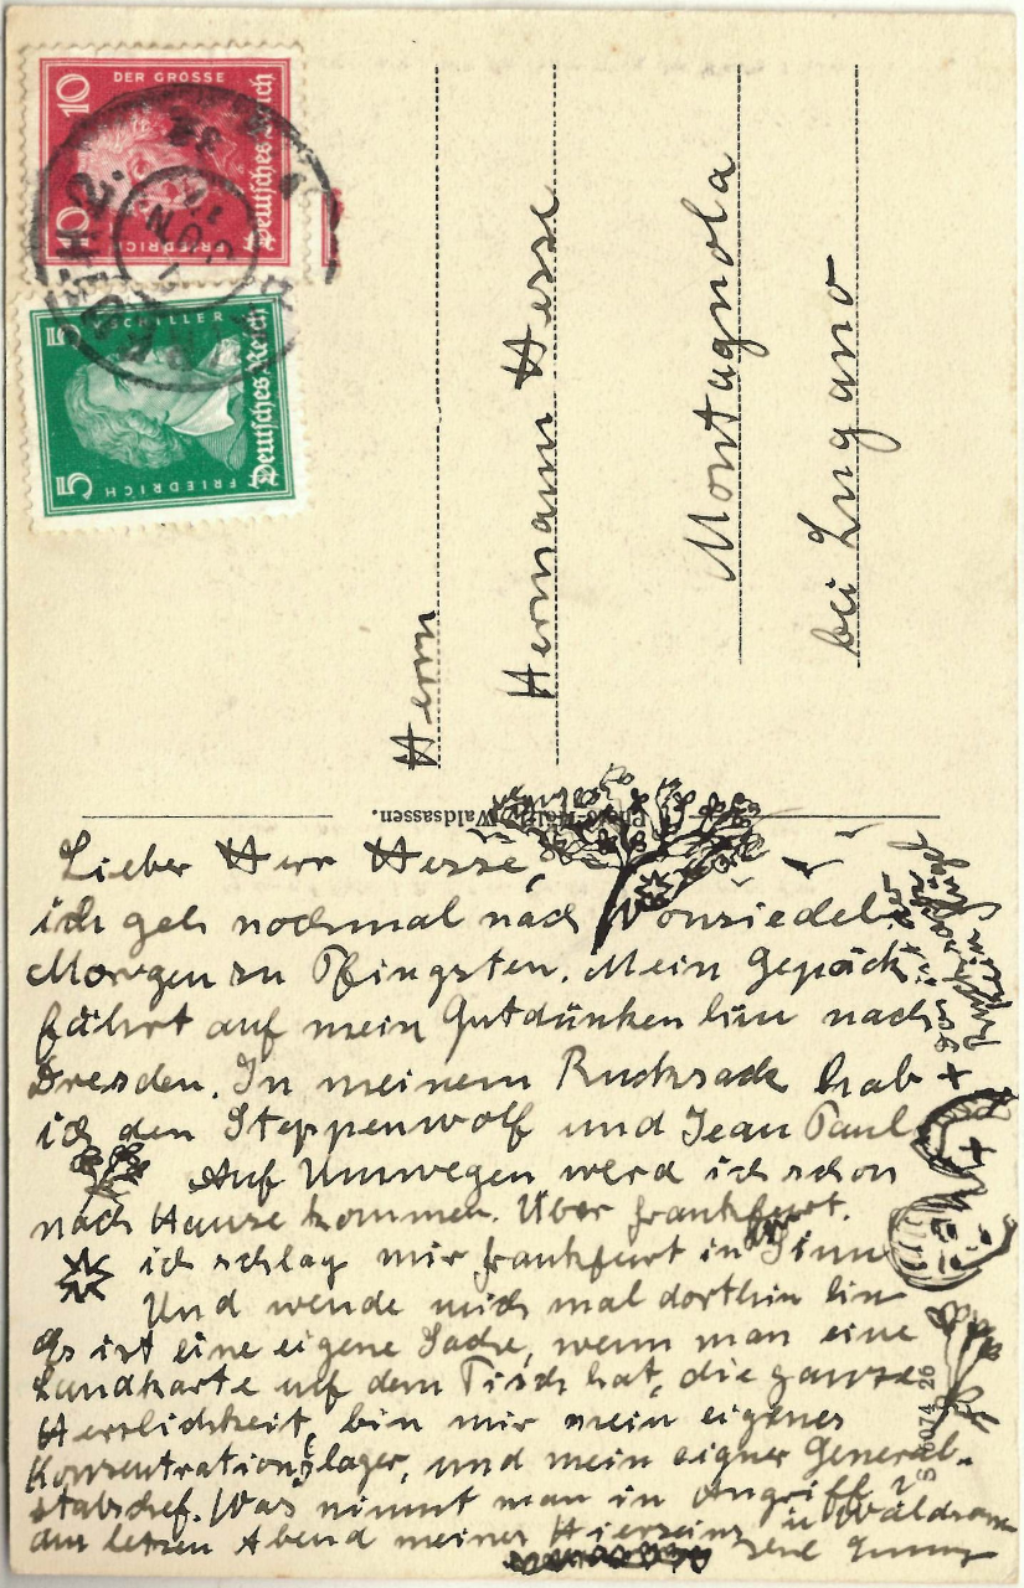 10 DER GROSSE
Deutsches Reich
10 FRIEDRICH
5 SCHILLER
Deutsches Reich
5 FRIEDRICH
Herrn
Hermann Hesse
Montagnola
bei Lugano
Waldsassen.
Lieber Herr Hesse,
ich geh nochmal nach Wonsiedel
Morgen zu Pfingsten. Mein Gepäck
fährt auf mein Gutdünken hin nach
Dresden. In meinem Rucksack hab
ich den Steppenwolf und Jean Paul
Auf Umwegen werd ich schon
nach Hause kommen. Über Frankfurt.
ich schlag mir Frankfurt in Sinn
Und wende mich mal dorthin hin
Es ist eine eigene Sache, wenn man eine
Landkarte auf dem Tisch hat, die ganze
Herrlichkeit, bin mir mein eigenes
Konzentrationslager, und mein eigner General-
stabschef. Was nimmt man in Angriff?
am letzen Abend meines Hierseins in
S 6074 26